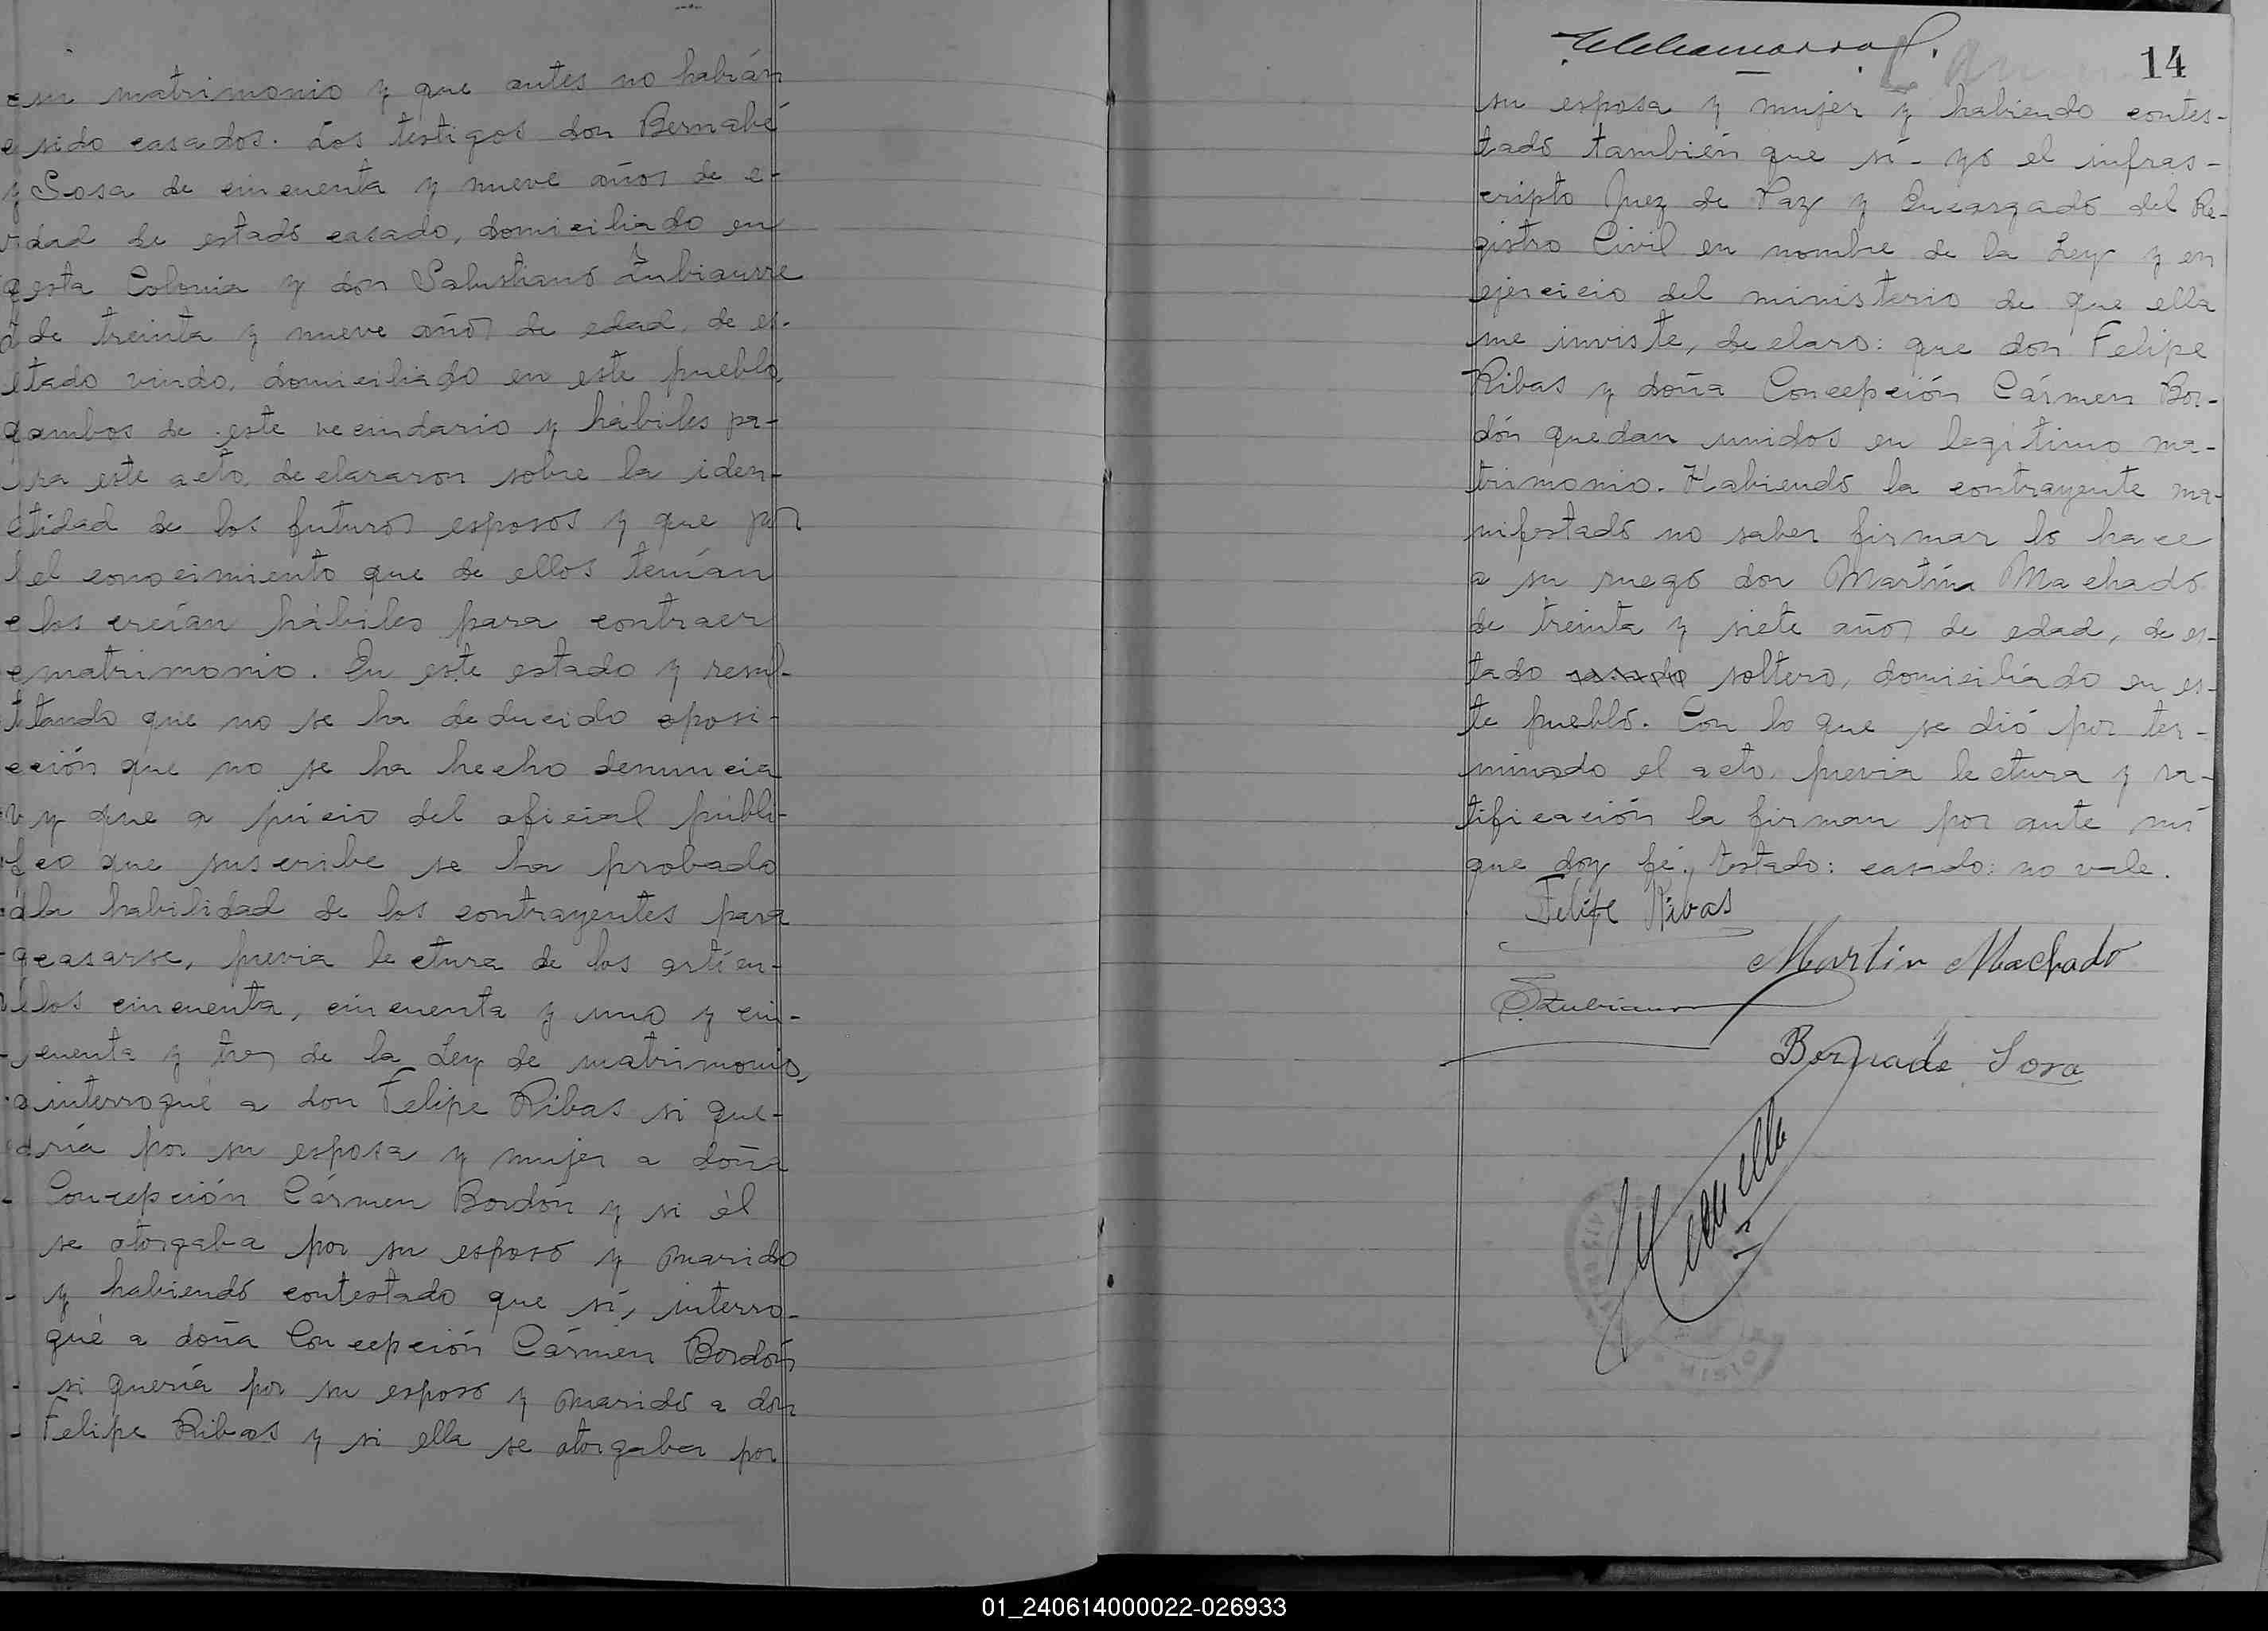 su matrimonio y que antes no habián
sido casados. Los testigos don Bernabé
Sosa de cincuenta y nueve años de e-
dad de estado casado, domiciliado en
esta Colonia y don Salustianó Zubiaurre
de treinta y nueve años de edad, de es-
tado viudo, domiciliado en este pueblo,
ambos de este vecindario y hábiles pa-
ra este acto, declararon sobre la iden-
tidad de los futuros esposos y que por
el conocimiento que de ellos tenían
los creían hábiles para contraer
matrimonio. En este estado y resul-
tando que no se ha deducido oposi-
ción que no se ha hecho denuncia
y que a juicio del oficial públi-
co que suscribe se ha probado
la habilidad de los contrayentes para
casarse, previa lectura de los artícu-
los cincuenta, cincuenta y uno y cin-
cuenta y tres de la Ley de matrimonio,
interrogué a don Felipe Ribas si que-
ría por su esposa y mujer a doña
Concepción Cármen Bordón y si él
se otorgaba por su esposó y marido
y habiendó contestado que sí, interro-
gué a doña Concepción Cármen Bordón
si quería por su esposó y maridó a don
Felipe Ribas y si ella se otorgaba por
14
su esposa y mujer y habiendo contes-
tadó también que sí - yó el infras-
cripto Juez de Paz y Encargadó del Re-
gistro Civil en nombre de la Ley y en
ejercicio del ministerio de que ella
me inviste, declaro: que don Felipe
Ribas y doña Concepción Cármen Bor-
dón quedan unidos en legítimo ma-
trimonio. Habiendó la contrayente ma-
nifestadó no saber firmar lo hace
a su ruegó don Martín Machadó
de treinta y siete años de edad, de es-
tado casado soltero, domiciliádo en es-
te puebló. Con lo que se dió por ter-
minado el acto, previa lectura y ra-
tificación la firman por ante mí
que doy fé. Testado: casado: no vale.
Felipe Ribas
Martin Machado
SZubiaurr
Bernabe Sosa
01_240614000022-026933